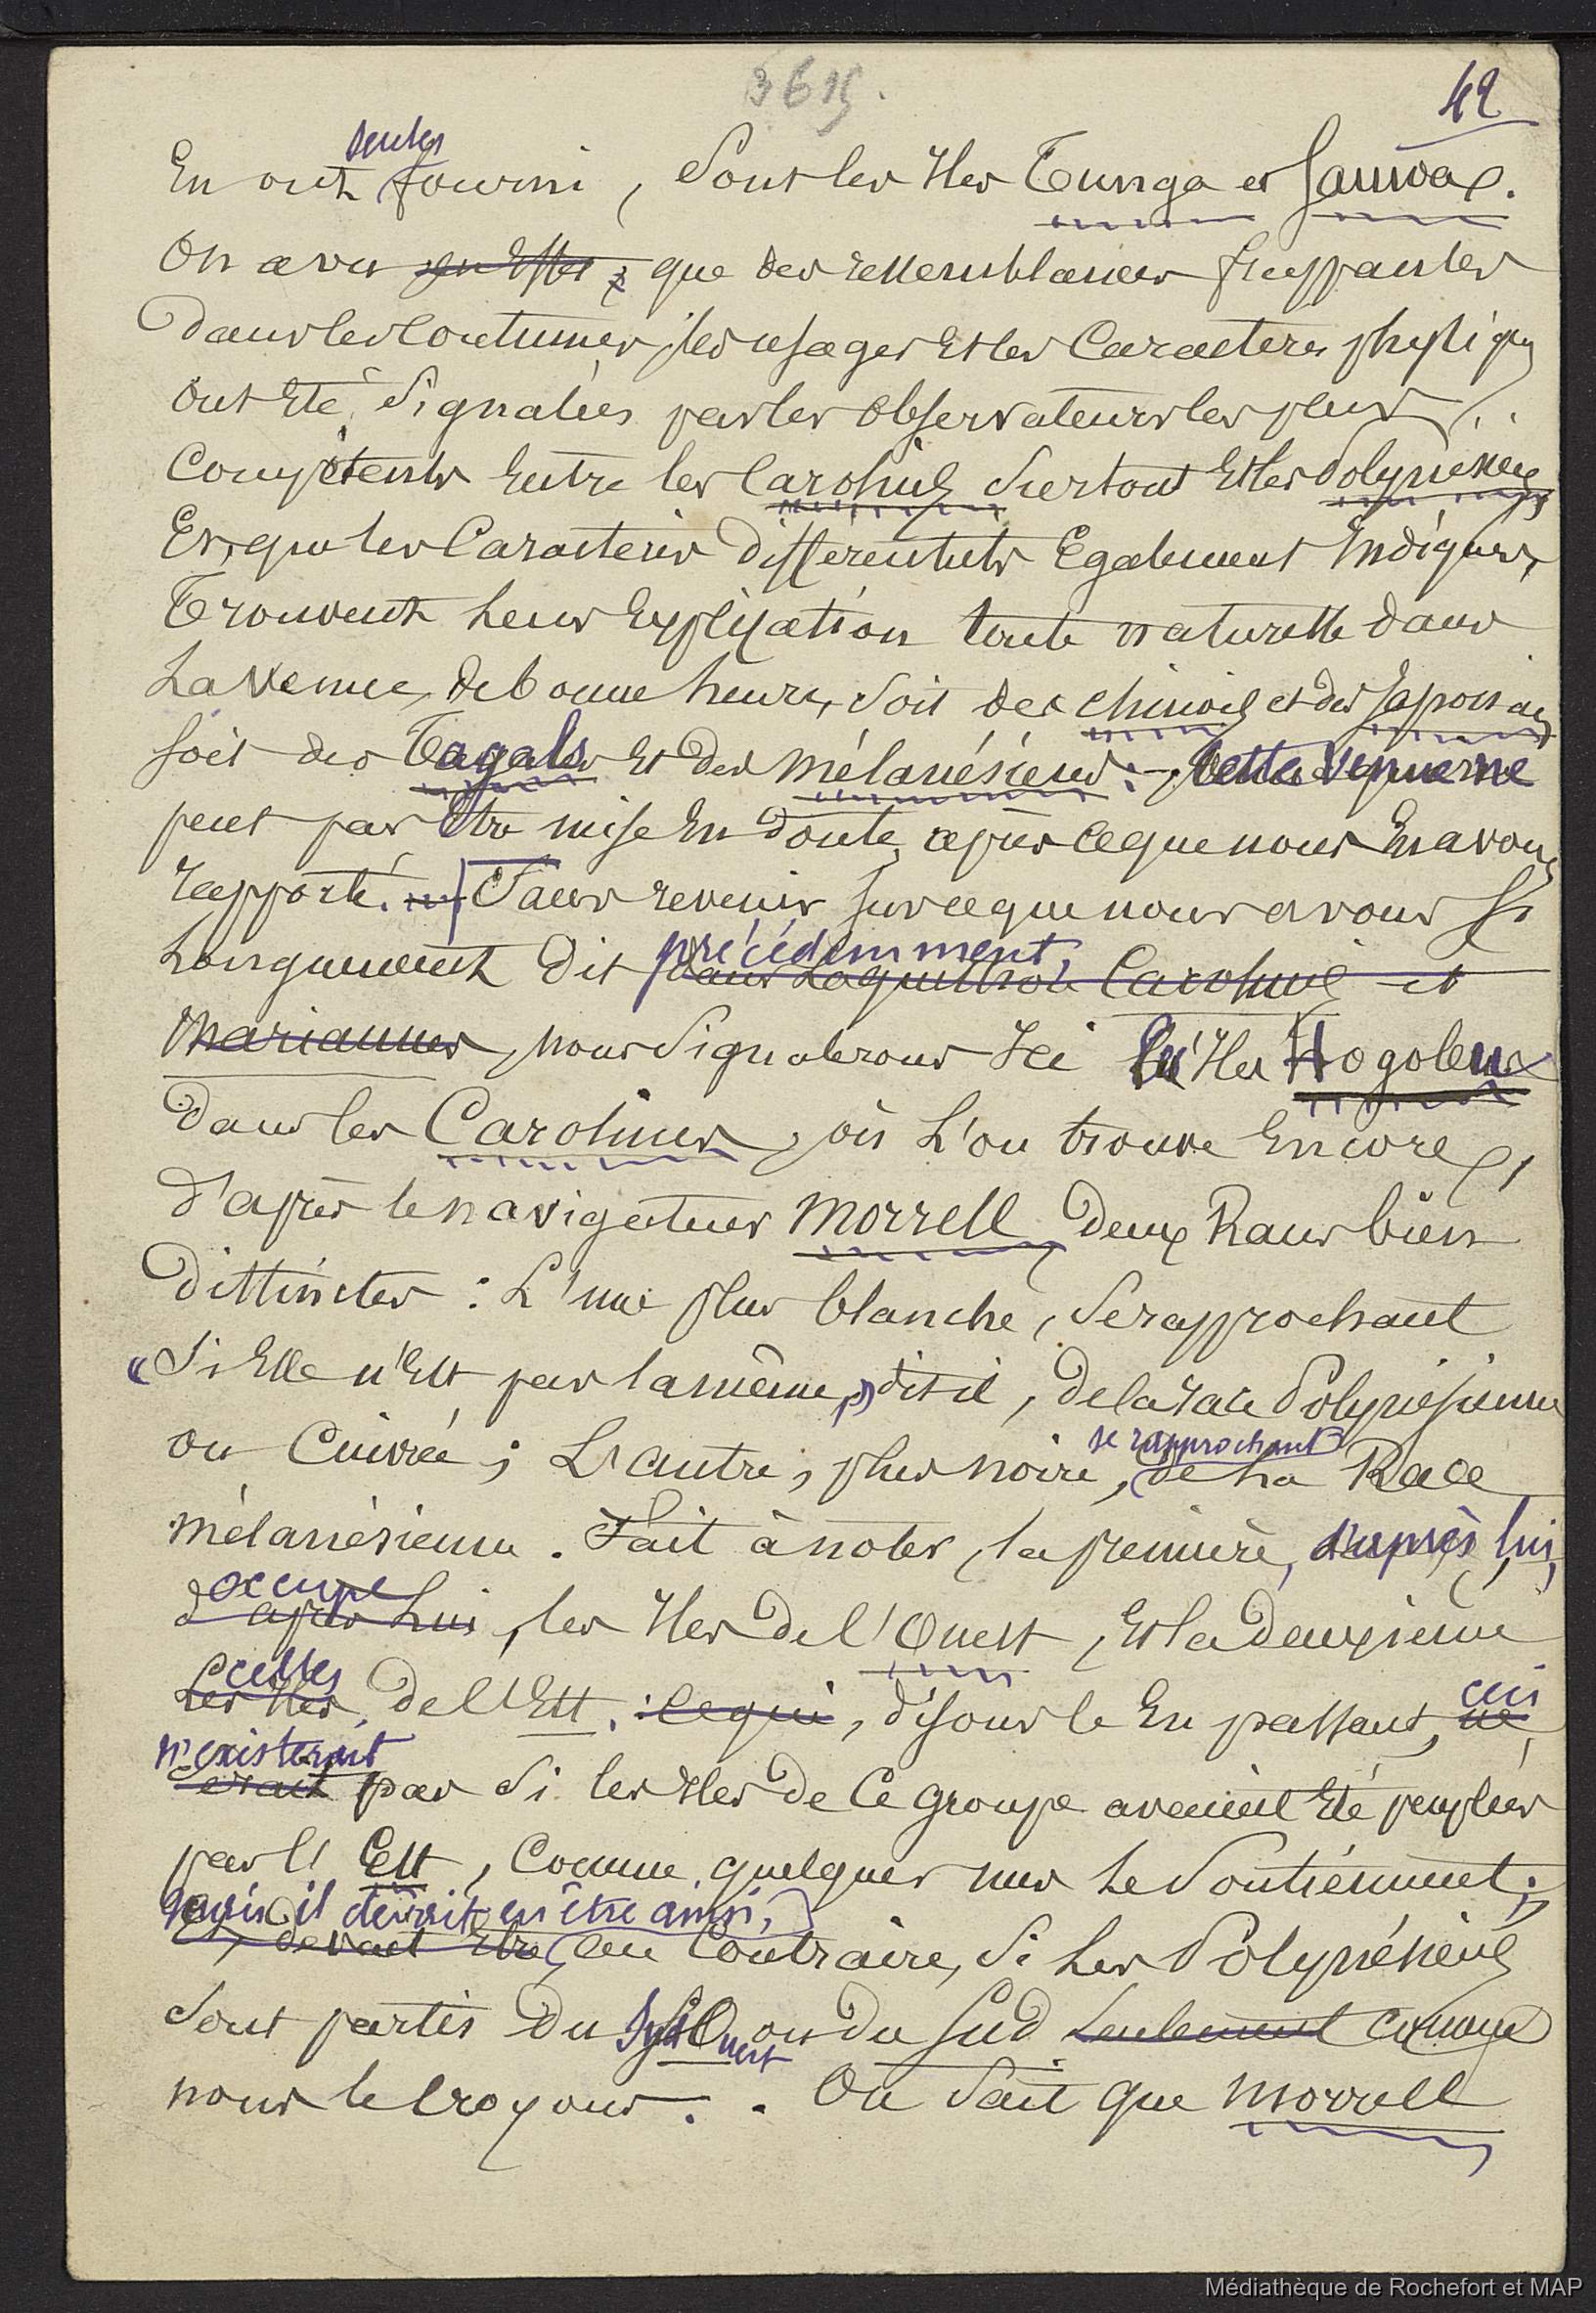 3615.
42
seules
En ont fourni, sont les Iles Tunga et Samoa.
On a vu en effet, que des ressemblances frappantes
dans les Coutumes, les usages et les Caractères physiques
ont été signalées par les observateurs les plus
Compétents entre les Carolins surtout et les Polynésiens
Et, que les Caractères différentiels également indiqués,
Trouvent leur explication toute naturelle dans
La venue, de bonne heure, soit des chinois et des Japonais
soit des Tagals et des mélanésiens : cette venue ne
peut pas être mise en doute, après ce que nous en avons
rapporté. Sans revenir sur ce que nous avons si
précédemment,
Longuement dit dans Carolins et
Mariannes, nous signalerons ici les Iles Hogoleux
dans les Carolines, où L'on trouve encore,
d'après le navigateur Morrell, deux Races bien
distinctes : L'une plus blanche, se rapprochant
« si Elle n'est pas la même » dit-il, de la race Polynésienne
se rapprochant
ou Cuivrée ; L'autre, plus noire, de la Race
mélanésienne. Fait à noter, la première, d'après lui,
occupe
d'après Lui, les Iles de l'Ouest, et la deuxième
celles
Les Iles, de l'Est, : ce qui, disons le en passant, ne
ceci
n'existerait
serait pas si les Iles de Ce groupe avaient été peuplées
par l'Est, Comme quelques uns Le soutiennent ;
mais il devrait en être ainsi,
devrait être, au Contraire, si Les Polynésiens
sont partis du Sud Ouest ou du Sud seulement comme
nous le croyons. . On sait que Morrell
Médiathèque de Rochefort et MAP